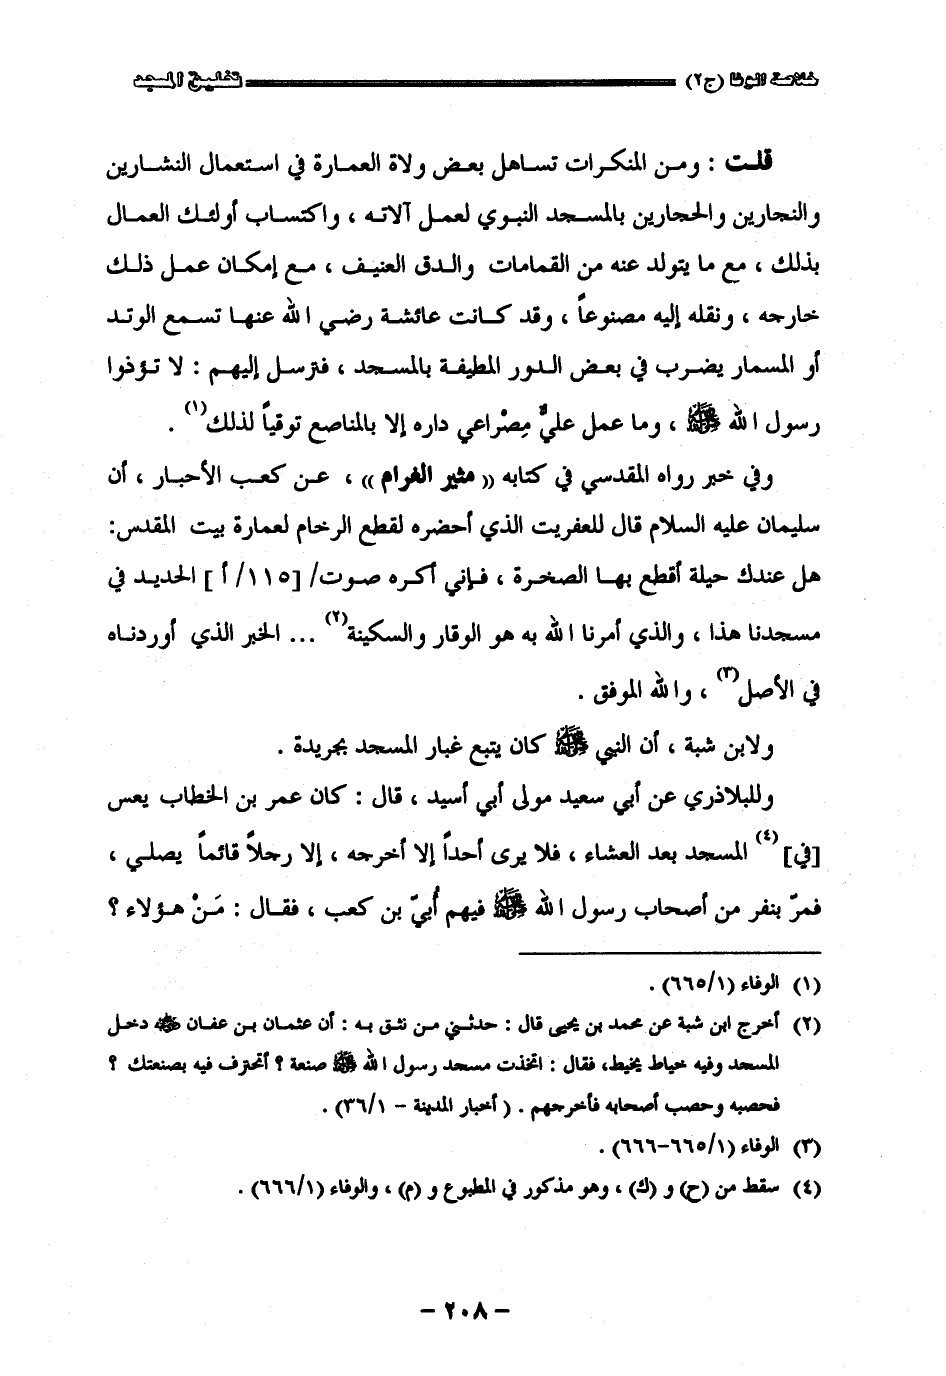 خلاصة الوفا (ج٢) تخليق المسجد
قلت : ومن المنكرات تساهل بعض ولاة العمارة في استعمال النشارين
والنجارين والحجارين بالمسجد النبوي لعمل آلاته ، واكتساب أولئك العمال
بذلك ، مع ما يتولد عنه من القمامات والدق العنيف ، مع إمكان عمل ذلك
خارجه ، ونقله إليه مصنوعاً ، وقد كانت عائشة رضي الله عنها تسمع الوتد
أو المسمار يضرب في بعض الدور المطيفة بالمسجد ، فترسل إليهم : لا تؤذوا
رسول الله ﷺ ، وما عمل عليٌّ مِصْراعي داره إلا بالمناصع توقياً لذلك(١) .
وفي خبر رواه المقدسي في كتابه « مثير الغرام » ، عن كعب الأحبار ، أن
سليمان عليه السلام قال للعفريت الذي أحضره لقطع الرخام لعمارة بيت المقدس:
هل عندك حيلة أقطع بها الصخرة ، فإني أكره صوت/ [١١٥/ أ ] الحديد في
مسجدنا هذا ، والذي أمرنا الله به هو الوقار والسكينة(٢) ... الخبر الذي أوردناه
في الأصل(٣) ، والله الموفق .
ولابن شبة ، أن النبي ﷺ كان يتبع غبار المسجد بجريدة .
وللبلاذري عن أبي سعيد مولى أبي أسيد ، قال : كان عمر بن الخطاب يعس
[في](٤) المسجد بعد العشاء ، فلا يرى أحداً إلا أخرجه ، إلا رجلاً قائماً يصلي ،
فمرّ بنفر من أصحاب رسول الله ﷺ فيهم أُبيّ بن كعب ، فقال : مَنْ هؤلاء ؟
(١) الوفاء (١/٦٦٥) .
(٢) أخرج ابن شبة عن محمد بن يحيى قال : حدثني من نثق به : أن عثمان بن عفان ﷺ دخل
المسجد وفيه خياط يخيط، فقال : اتخذت مسجد رسول الله ﷺ صنعة ؟ أتحترف فيه بصنعتك ؟
فحصبه وحصب أصحابه فأخرجهم . ( أخبار المدينة – ١/٣٦) .
(٣) الوفاء (١/٦٦٥-٦٦٦) .
(٤) سقط من (ح) و (ك) ، وهو مذكور في المطبوع و (م) ، والوفاء (١/٦٦٦) .
– ٢٠٨ –